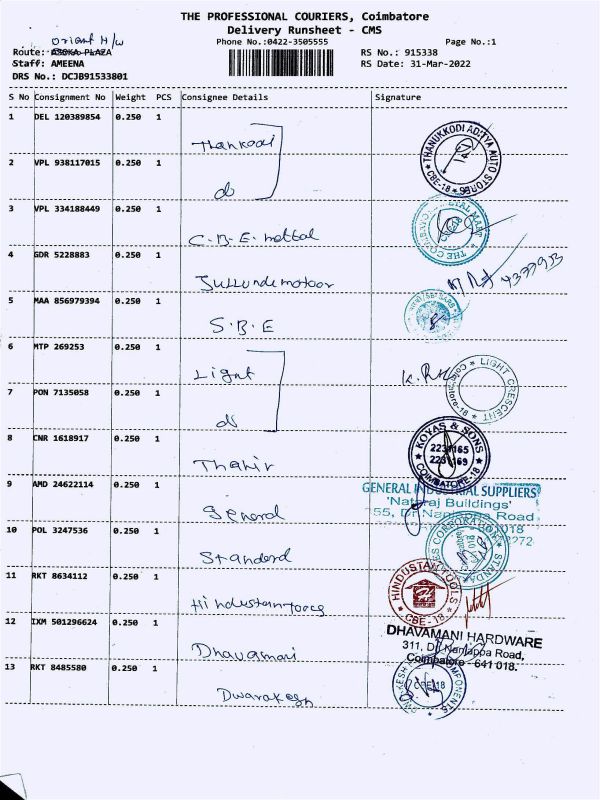 THE PROFESSIONAL COURIERS, Coimbatore
Delivery Runsheet - CMS
Phone No.:0422-3505555 Page No.:1
Orient H/w
Route: ASOKA PLAZA RS No.: 915338
Staff: AMEENA RS Date: 31-Mar-2022
DRS No.: DCJB91533801
S No Consignment No Weight PCS Consignee Details Signature
1 DEL 120389854 0.250 1 Thankodi
THANUKKODI ADITYA AUTO STORES
CBE-18
2 VPL 938117015 0.250 1 do
3 VPL 334188449 0.250 1 C.B.E. mettal
4 GDR 5228883 0.250 1
5 MAA 856979394 0.250 1 S.B.E
6 MTP 269253 0.250 1 Light
K.
LIGHT CRESCENT
7 PON 7135058 0.250 1 do
8 CNR 1618917 0.250 1 Thahir
KOYAS & SONS
COIMBATORE-18
9 AMD 24622114 0.250 1 General
GENERAL INDUSTRIAL SUPPLIERS
'Nataraj Buildings'
55, Dr. Nanjappa Road
10 POL 3247536 0.250 1 Standerd
11 RKT 8634112 0.250 1 Hindustan Tools
HINDUSTAN TOOLS
CBE-18
12 IXM 501296624 0.250 1 Dhavamani
DHAVAMANI HARDWARE
311, Dr. Nanjappa Road,
Coimbatore - 641 018.
13 RKT 8485580 0.250 1 Dwarakesh
CBE-18